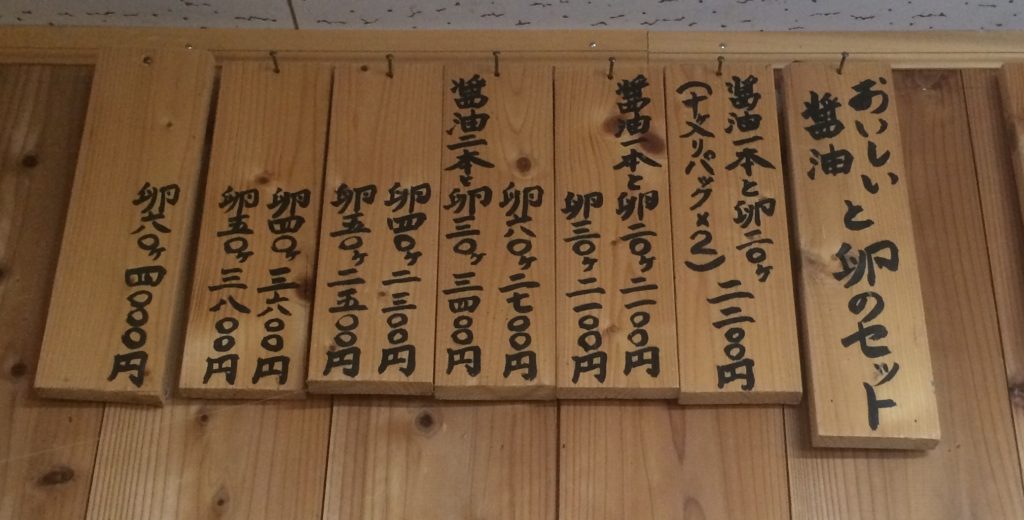 おいしい
醤油と卵のセット
醤油一本と卵二〇ヶ 二二〇〇円
(十ヶ入りパック×2)
醤油一本と卵二〇ヶ二一〇〇円
卵三〇ヶ二一〇〇円
卵四〇ヶ二三〇〇円
卵五〇ヶ二五〇〇円
卵六〇ヶ二七〇〇円
醤油二本と卵三〇ヶ三四〇〇円
卵四〇ヶ三六〇〇円
卵五〇ヶ三八〇〇円
卵六〇ヶ四〇〇〇円